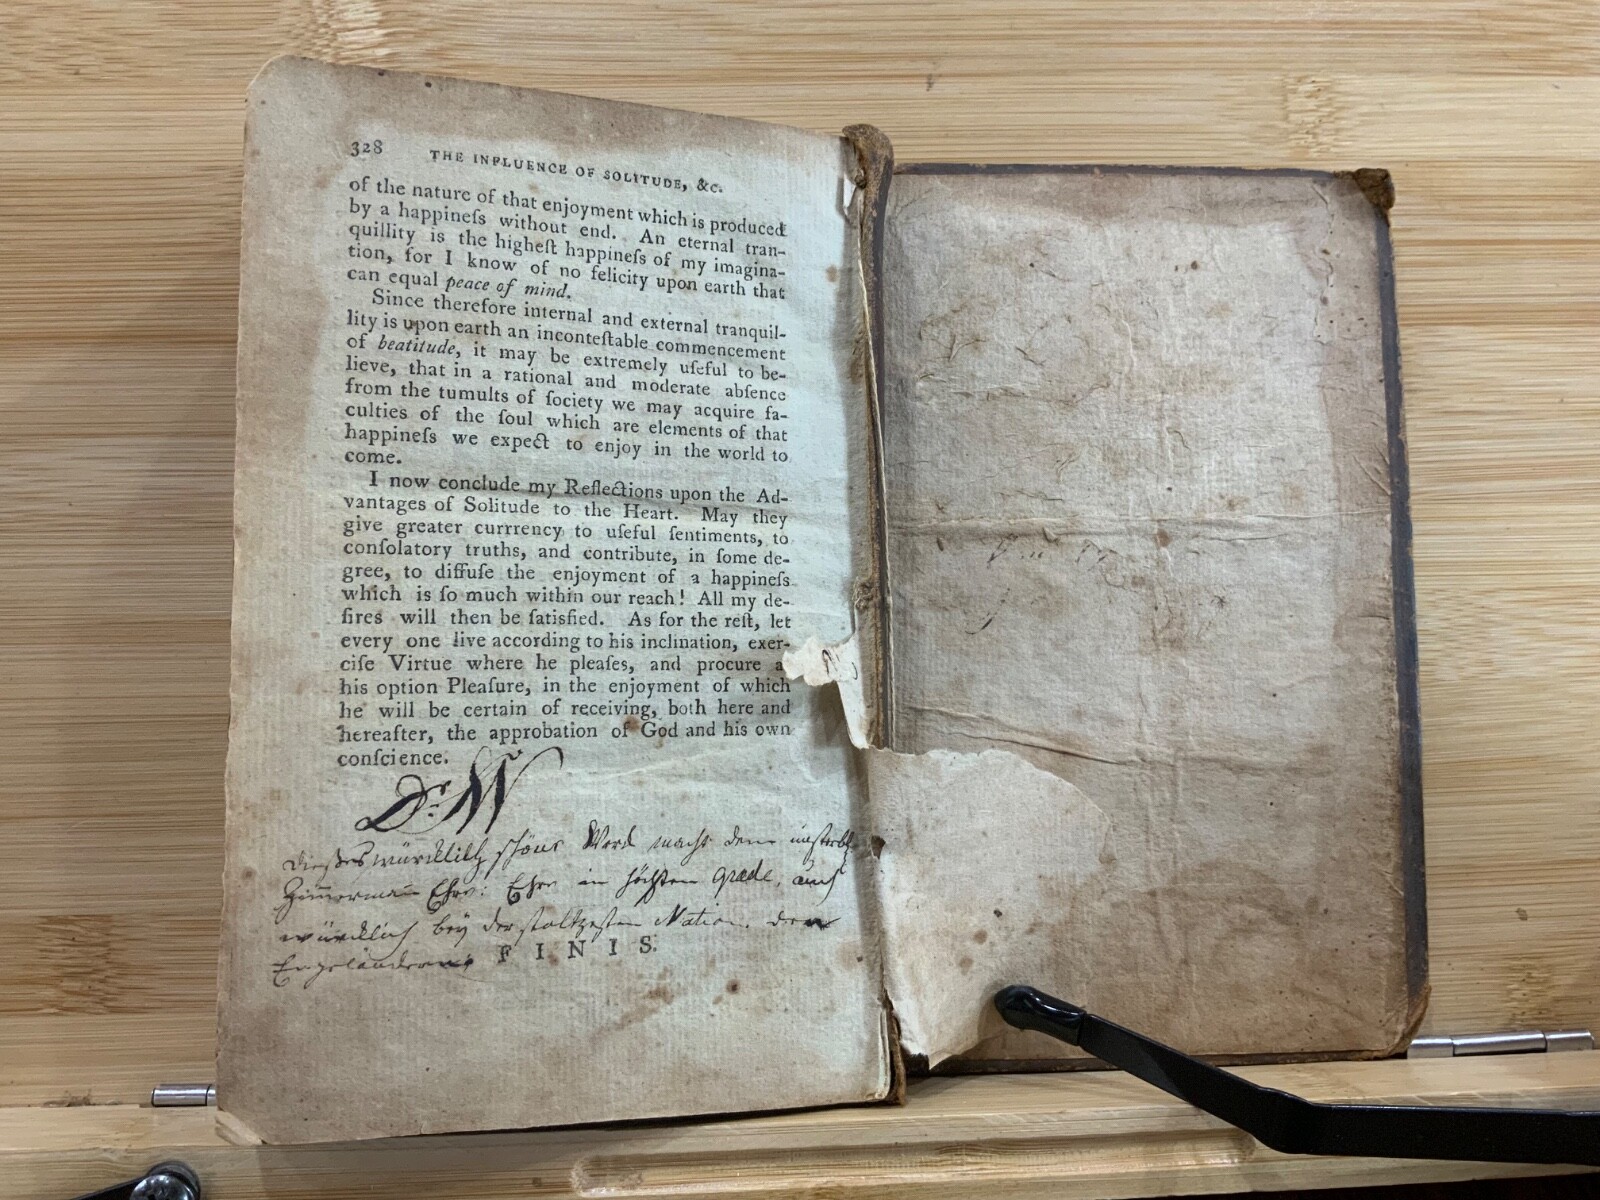 328 THE INFLUENCE OF SOLITUDE, &c.
of the nature of that enjoyment which is produced
by a happineſs without end. An eternal tran-
quillity is the higheſt happineſs of my imagina-
tion, for I know of no felicity upon earth that
can equal peace of mind.
Since therefore internal and external tranquil-
lity is upon earth an inconteſtable commencement
of beatitude, it may be extremely uſeful to be-
lieve, that in a rational and moderate abſence
from the tumults of ſociety we may acquire fa-
culties of the ſoul which are elements of that
happineſs we expect to enjoy in the world to
come.
I now conclude my Reflections upon the Ad-
vantages of Solitude to the Heart. May they
give greater currrency to uſeful ſentiments, to
conſolatory truths, and contribute, in ſome de-
gree, to diffuſe the enjoyment of a happineſs
which is ſo much within our reach! All my de-
ſires will then be ſatisfied. As for the reſt, let
every one live according to his inclination, exer-
ciſe Virtue where he pleaſes, and procure a
his option Pleaſure, in the enjoyment of which
he will be certain of receiving, both here and
hereafter, the approbation of God and his own
conſcience.
Dr. W
Dießes würcklich ſchöne Werck macht dem unſterbl
Zim̄erman̄ Ehre: Ehre im höchſten Grade, auch
würcklich bey der ſtoltzeſten Nation. den
Engeländern.
FINIS.